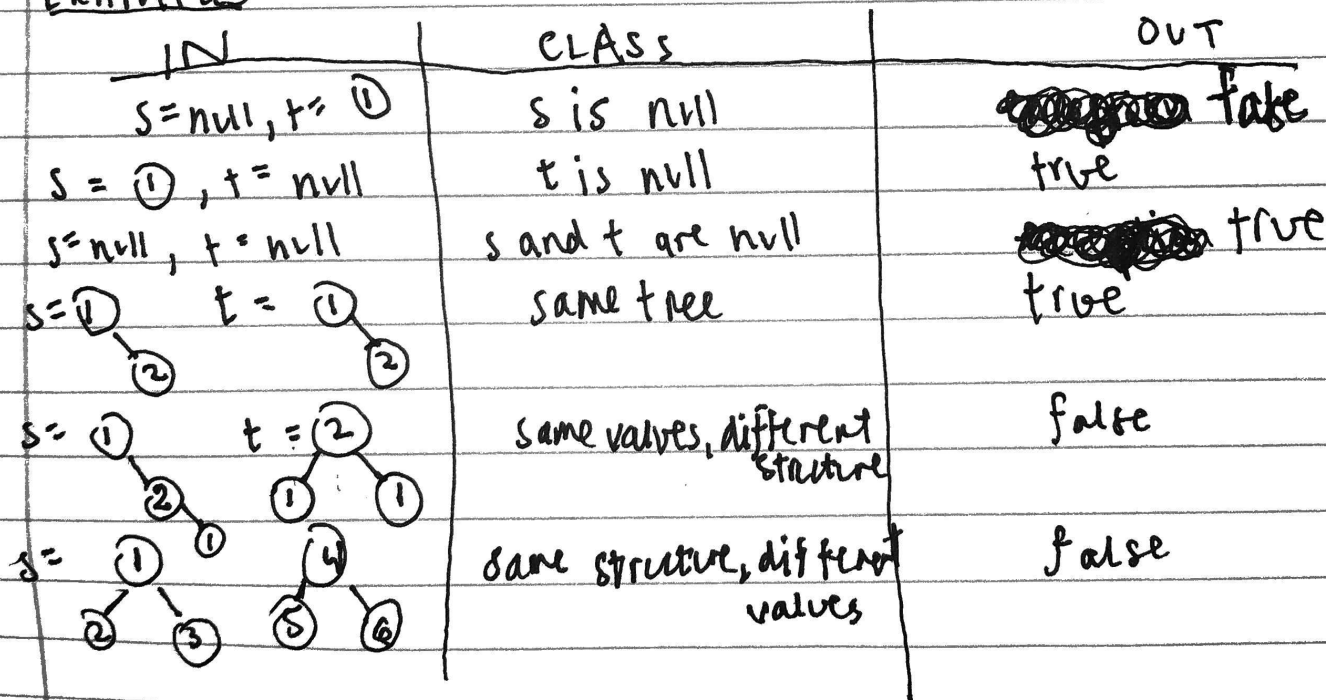 IN CLASS OUT
s=null, t= ① s is null false
s = ①, t = null t is null true
s=null, t = null s and t are null true
s= ① t = ① same tree true
② ②
s= ① t = ② same values, different false
structure
② ① ①
①
s= ① ④ same structure, different false
② ③ ⑤ ⑥ values